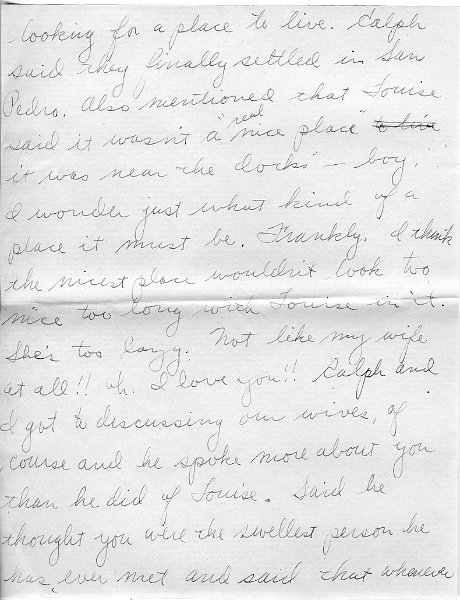 looking for a place to live. Ralph
said they finally settled in San
Pedro. Also mentioned that Louise
said it wasn't a "real nice place" to live
it was near the docks — boy,
I wonder just what kind of a
place it must be. Frankly, I think
the nicest place wouldn't look too
nice too long with Louise in it.
She's too lazy. Not like my wife
at all!! uh. I love you!! Ralph and
I got to discussing our wives, of
course and he spoke more about you
than he did of Louise. Said he
thought you were the swellest person he
has ever met and said that whenever